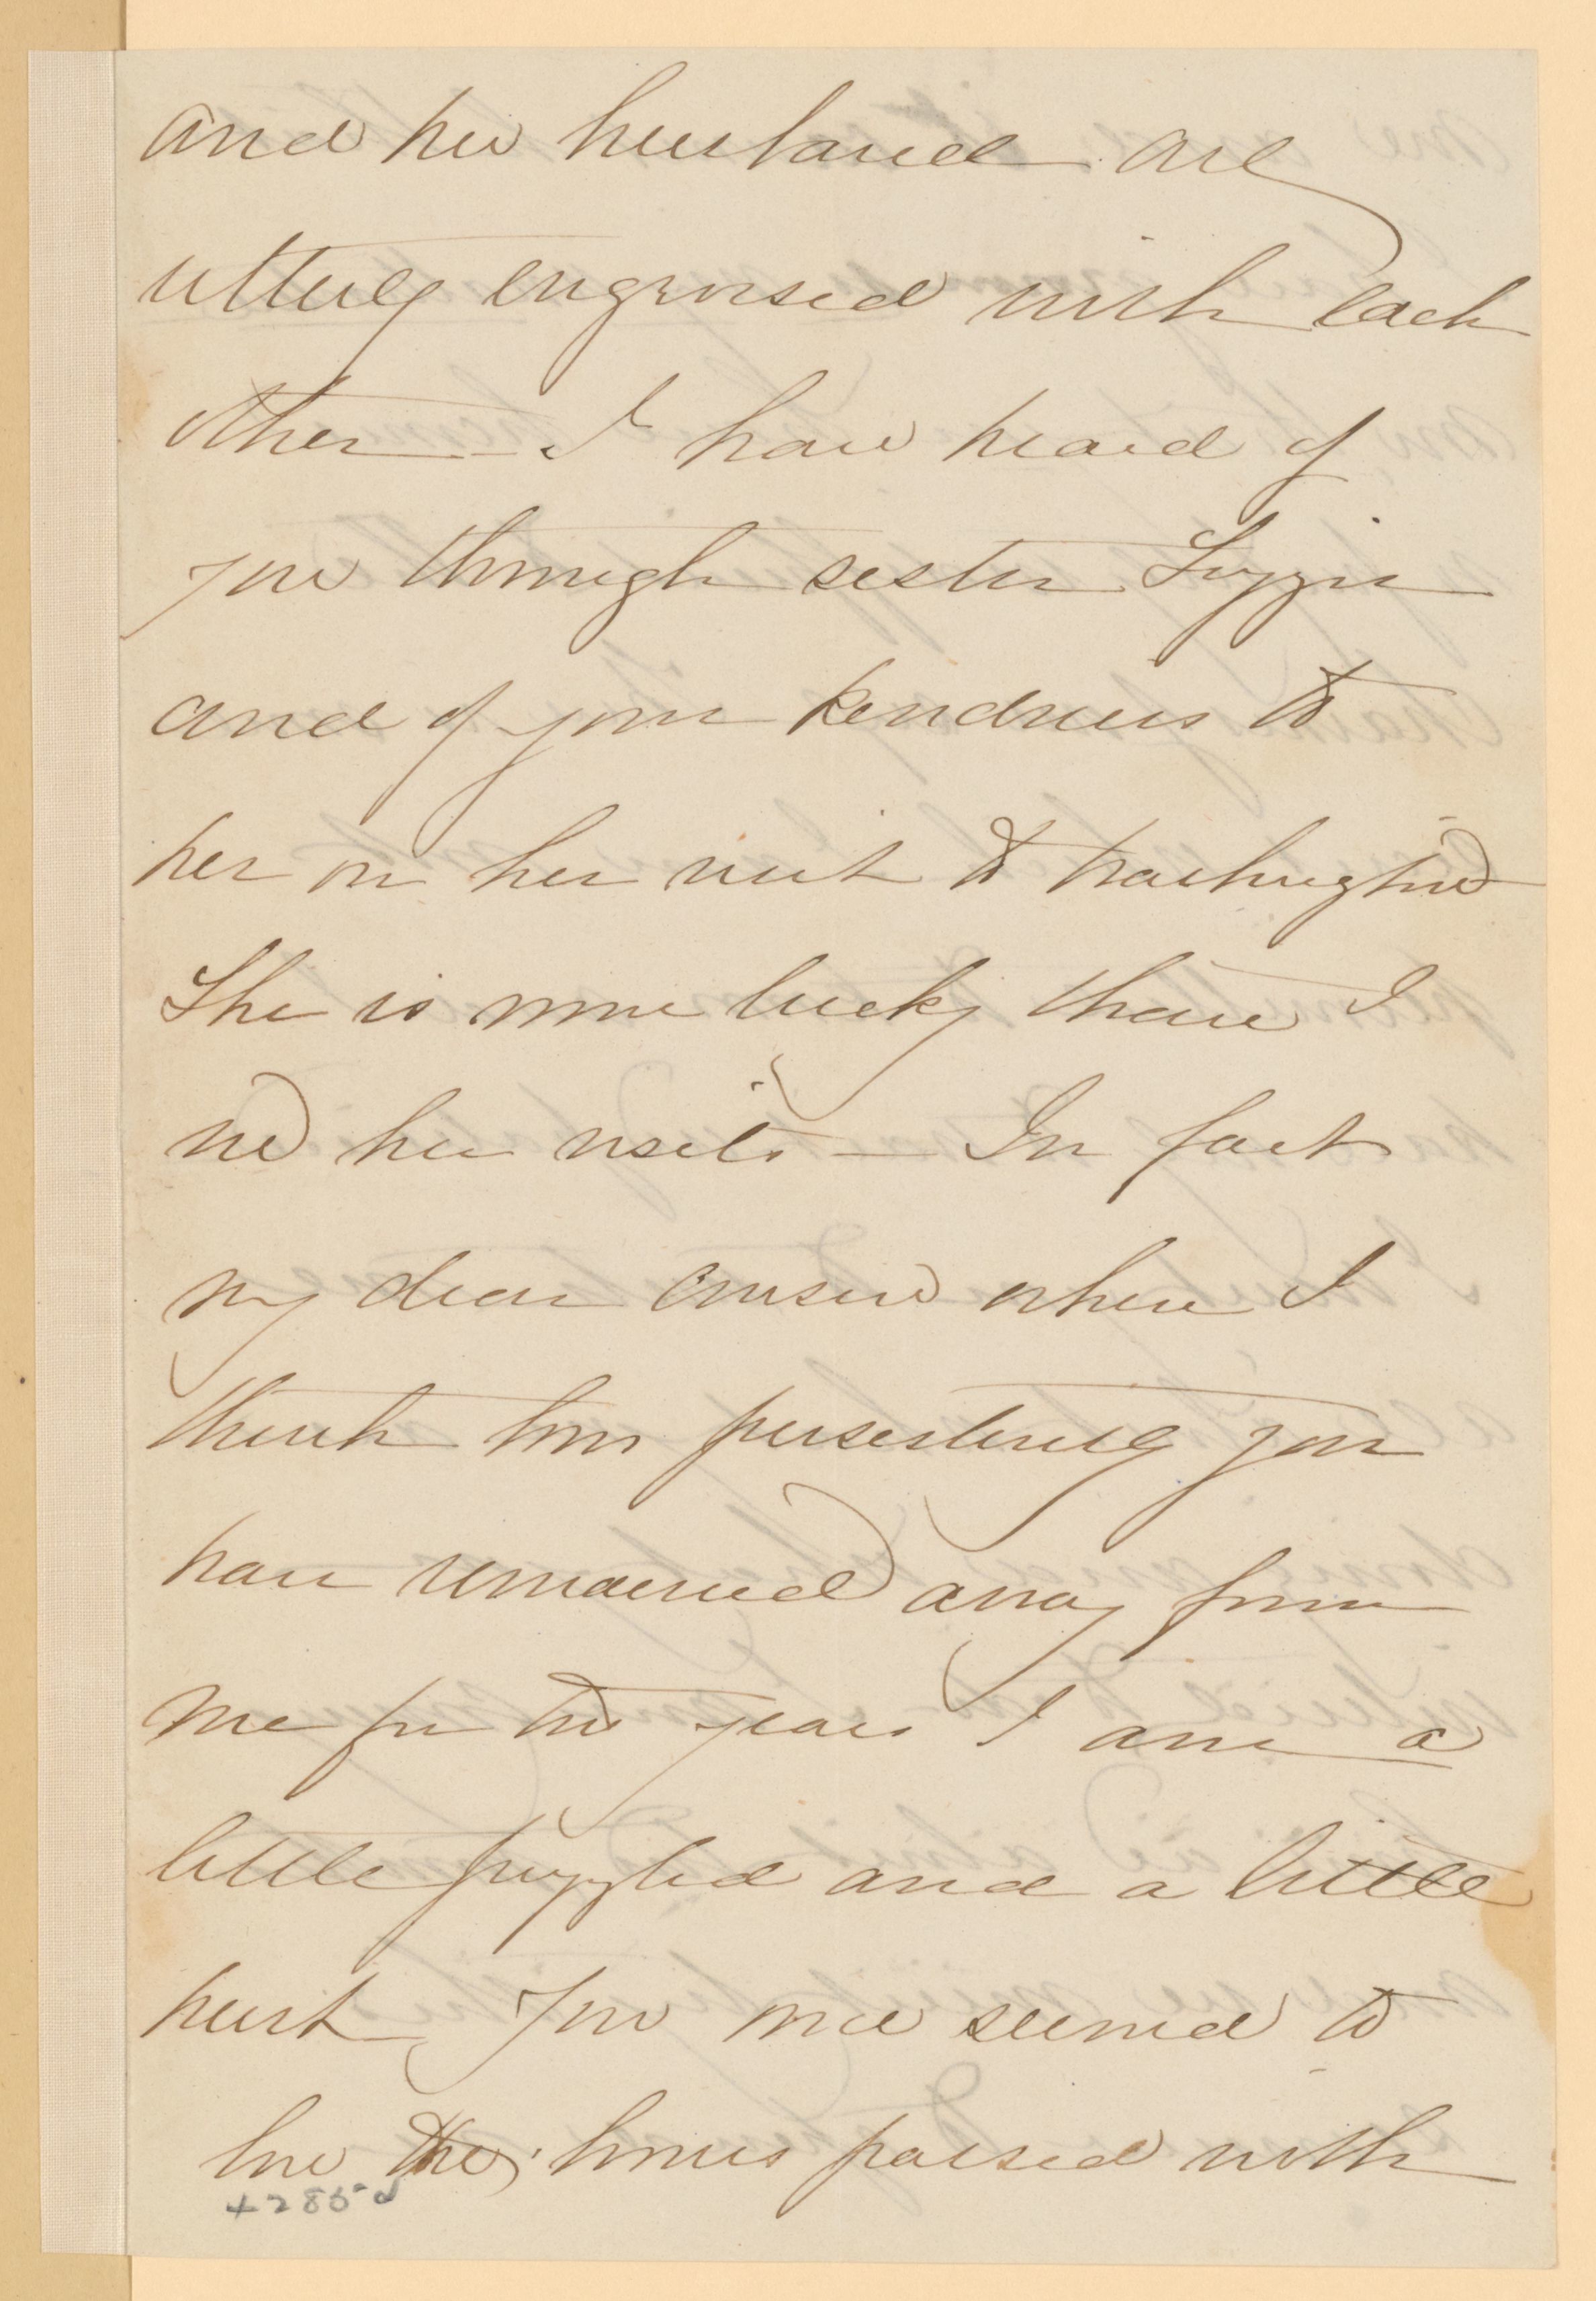 and her husband are
utterly engrossed with each
other – I have heard of
you through sister Lizzie
and of your kindness to
her on her visit to Washington
She is more lucky than I
in her visits – In fact
my dear cousin when I
think how persistently you
have remained away from
me for two years I am a
little puzzled and a little
hurt, You once seemed to
love the hours passed with
+285-d